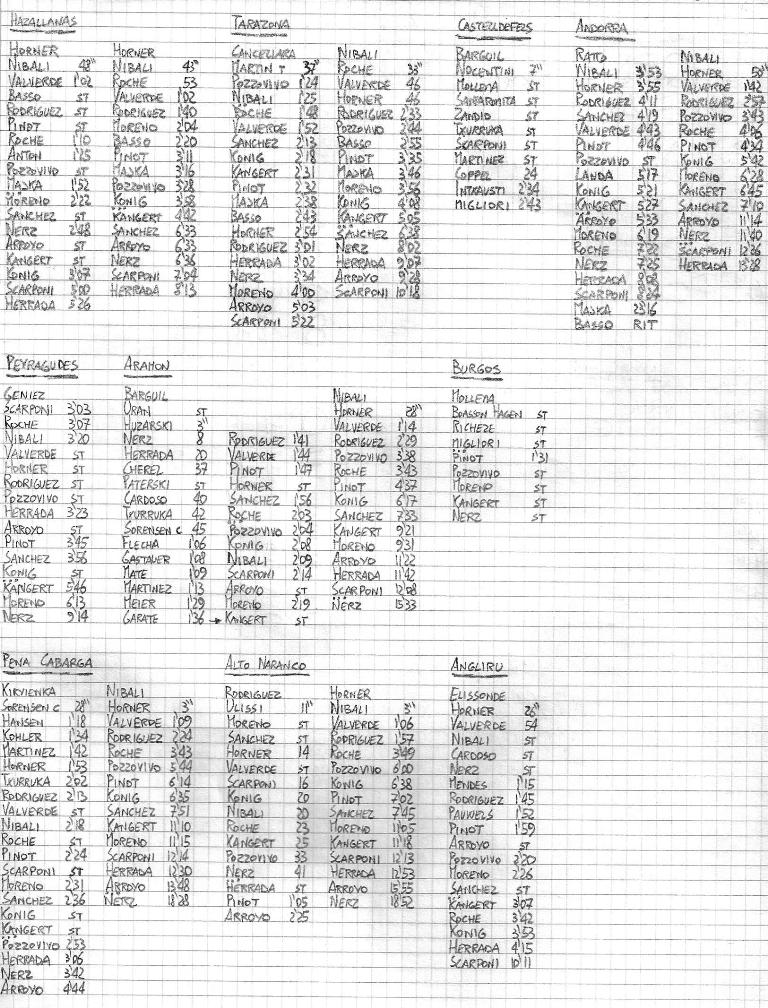 HAZALLANAS
HORNER
NIBALI 48"
VALVERDE 1'02
BASSO ST
RODRIGUEZ ST
PINOT ST
ROCHE 1'10
ANTON 1'25
POZZOVIVO ST
MAJKA 1'52
MORENO 2'22
SANCHEZ ST
NERZ 2'48
ARROYO ST
KANGERT ST
KONIG 3'07
SCARPONI 5'00
HERRADA 5'26
HORNER
NIBALI 43"
ROCHE 53
VALVERDE 1'02
RODRIGUEZ 1'40
MORENO 2'04
BASSO 2'20
PINOT 3'11
MAJKA 3'16
POZZOVIVO 3'28
KONIG 3'58
KANGERT 4'42
SANCHEZ 6'33
ARROYO 6'33
NERZ 6'36
SCARPONI 7'04
HERRADA 8'13
TARAZONA
CANCELLARA
MARTIN T 37"
POZZOVIVO 1'24
NIBALI 1'25
ROCHE 1'48
VALVERDE 1'52
SANCHEZ 2'13
KONIG 2'18
KANGERT 2'31
PINOT 2'32
MAJKA 2'38
BASSO 2'43
HORNER 2'54
RODRIGUEZ 3'01
HERRADA 3'02
NERZ 3'34
MORENO 4'00
ARROYO 5'03
SCARPONI 5'22
NIBALI
ROCHE 33"
VALVERDE 46
HORNER 46
RODRIGUEZ 2'33
POZZOVIVO 2'44
BASSO 2'55
PINOT 3'35
MAJKA 3'46
MORENO 3'56
KONIG 4'08
KANGERT 5'05
SANCHEZ 6'38
NERZ 8'02
HERRADA 9'07
ARROYO 9'28
SCARPONI 10'18
CASTELLDEFELS
BARGUIL
NOCENTINI 7"
MOLLEMA ST
SANTAROMITA ST
ZANDIO ST
TXURRUKA ST
SCARPONI ST
MARTINEZ ST
COPPEL 24
INTXAUSTI 2'34
MIGLIORI 2'43
ANDORRA
RATTO
NIBALI 3'53
HORNER 3'55
RODRIGUEZ 4'11
SANCHEZ 4'19
VALVERDE 4'43
PINOT 4'46
POZZOVIVO ST
LANDA 5'17
KONIG 5'21
KANGERT 5'27
ARROYO 5'33
MORENO 6'19
ROCHE 7'22
NERZ 7'25
HERRADA 8'08
SCARPONI 8'24
MAJKA 23'16
BASSO RIT
NIBALI
HORNER 50"
VALVERDE 1'42
RODRIGUEZ 2'57
POZZOVIVO 3'43
ROCHE 4'06
PINOT 4'34
KONIG 5'42
MORENO 6'28
KANGERT 6'45
SANCHEZ 7'10
ARROYO 11'14
NERZ 11'40
SCARPONI 12'26
HERRADA 13'28
PEYRAGUDES
GENIEZ
SCARPONI 3'03
ROCHE 3'07
NIBALI 3'20
VALVERDE ST
HORNER ST
RODRIGUEZ ST
POZZOVIVO ST
HERRADA 3'23
ARROYO ST
PINOT 3'45
SANCHEZ 3'56
KONIG ST
KANGERT 5'46
MORENO 6'13
NERZ 9'14
ARAMON
BARGUIL
URAN ST
HUZARSKI 3"
NERZ 8
HERRADA 20
CHEREL 37
PATERSKI ST
CARDOSO 40
TXURRUKA 42
SORENSEN C 45
FLECHA 1'06
GASTAUER 1'08
MATE 1'09
MARTINEZ 1'13
MEIER 1'29
GARATE 1'36 →
RODRIGUEZ 1'41
VALVERDE 1'44
PINOT 1'47
HORNER ST
SANCHEZ 1'56
ROCHE 2'03
POZZOVIVO 2'04
KONIG 2'08
NIBALI 2'09
SCARPONI 2'14
ARROYO ST
MORENO 2'19
KANGERT ST
NIBALI
HORNER 28"
VALVERDE 1'14
RODRIGUEZ 2'29
POZZOVIVO 3'38
ROCHE 3'43
PINOT 4'37
KONIG 6'17
SANCHEZ 7'33
KANGERT 9'21
MORENO 9'31
ARROYO 11'22
HERRADA 11'42
SCARPONI 12'08
NERZ 15'33
BURGOS
MOLLEMA
BOASSON HAGEN ST
RICHEZE ST
MIGLIORI ST
PINOT 1'31
POZZOVIVO ST
MORENO ST
KANGERT ST
NERZ ST
PENA CABARGA
KIRYIENKA
SORENSEN C 28"
HANSEN 1'18
KOHLER 1'34
MARTINEZ 1'42
HORNER 1'53
TXURRUKA 2'02
RODRIGUEZ 2'13
VALVERDE ST
NIBALI 2'18
ROCHE ST
PINOT 2'24
SCARPONI ST
MORENO 2'31
SANCHEZ 2'36
KONIG ST
KANGERT ST
POZZOVIVO 2'53
HERRADA 3'06
NERZ 3'42
ARROYO 4'44
NIBALI
HORNER 3"
VALVERDE 1'09
RODRIGUEZ 2'24
ROCHE 3'43
POZZOVIVO 3'44
PINOT 6'14
KONIG 6'35
SANCHEZ 7'51
KANGERT 11'10
MORENO 11'15
SCARPONI 12'14
HERRADA 12'30
ARROYO 13'48
NERZ 18'28
ALTO NARANCO
RODRIGUEZ
ULISSI 11"
MORENO ST
SANCHEZ ST
HORNER 14
VALVERDE ST
SCARPONI 16
KONIG 20
NIBALI 20
ROCHE 23
KANGERT 25
POZZOVIVO 33
NERZ 41
HERRADA ST
PINOT 1'05
ARROYO 2'25
HORNER
NIBALI 3"
VALVERDE 1'06
RODRIGUEZ 1'57
ROCHE 3'49
POZZOVIVO 6'00
KONIG 6'38
PINOT 7'02
SANCHEZ 7'45
MORENO 11'05
KANGERT 11'18
SCARPONI 12'13
HERRADA 12'53
ARROYO 15'55
NERZ 18'52
ANGLIRU
ELISSONDE
HORNER 26"
VALVERDE 54
NIBALI ST
CARDOSO ST
NERZ ST
MENDES 1'15
RODRIGUEZ 1'45
PAUWELS 1'52
PINOT 1'59
ARROYO ST
POZZOVIVO 2'20
MORENO 2'26
SANCHEZ ST
KANGERT 3'07
ROCHE 3'42
KONIG 3'53
HERRADA 4'15
SCARPONI 10'11